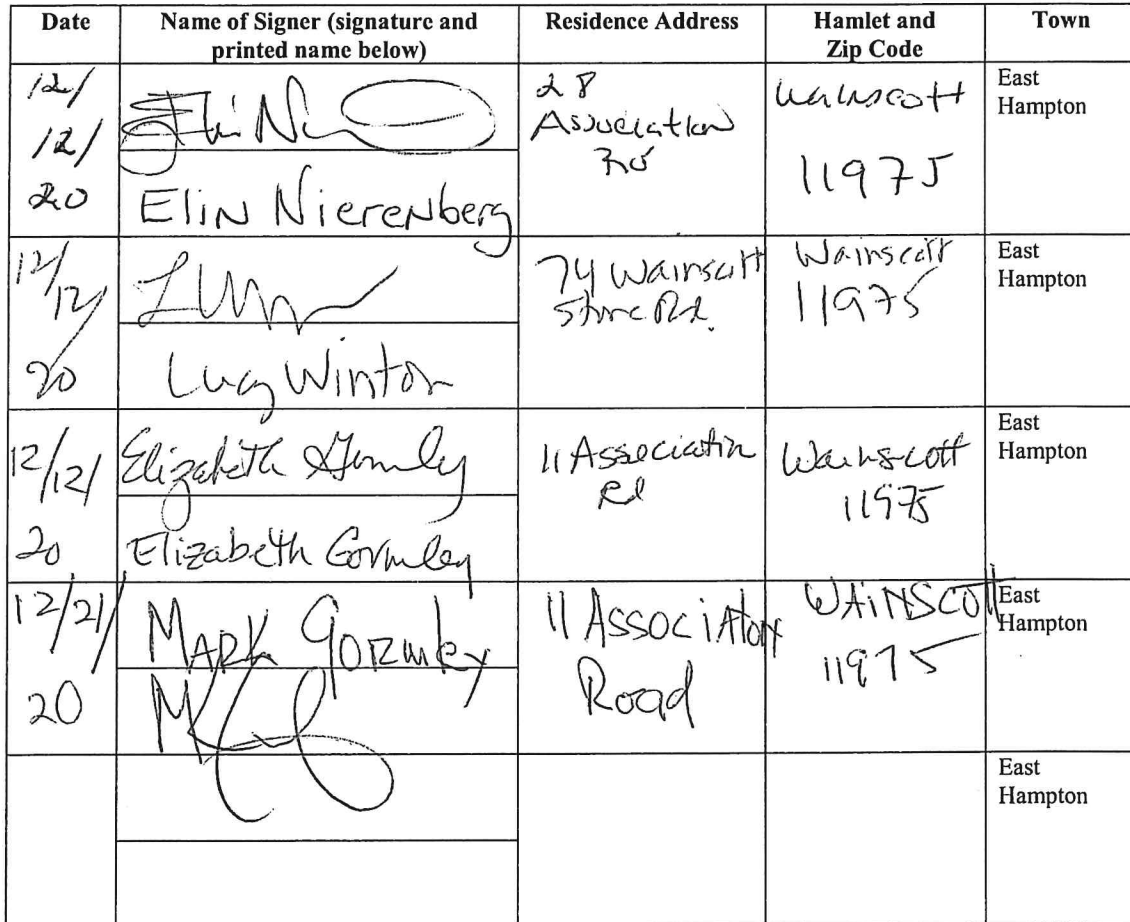 Date Name of Signer (signature and printed name below) Residence Address Hamlet and Zip Code Town
12/
12/
20
Elin Nierenberg
28
Association
Rd
Wainscott
11975
East
Hampton
12/
12/
20
Lucy Winton
74 Wainscott
Stone Rd.
Wainscott
11975
East
Hampton
12/12/
20
Elizabeth Gormley
Elizabeth Gormley
11 Association
Rd
Wainscott
11975
East
Hampton
12/21/
20
MARK GORMLEY
11 ASSOCIATION
Road
WAINSCOTT
11975
East
Hampton
East
Hampton